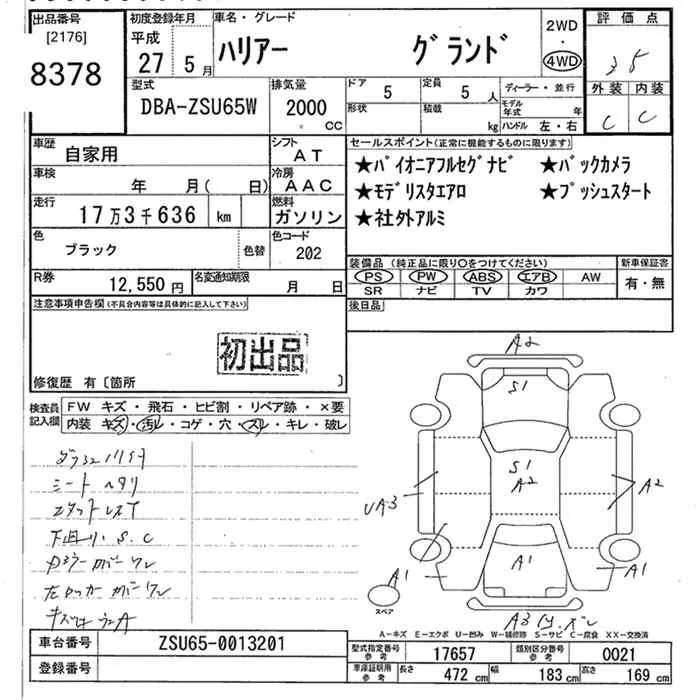 出品番号 初度登録年月 車名・グレード 2WD 評価点
[2176] 平成 ハリアー グランド 4WD 3.5
8378 27 5月 外装 内装
型式 排気量 ドア 5 定員 5人 ディーラー・並行 C C
DBA-ZSU65W 2000 CC 形状 積載 kg モデル年式 年
ハンドル 左・右
車歴 自家用 シフト AT セールスポイント(正常に機能するものに限ります)
車検 年 月( 日) 冷房 AAC ★パイオニアフルセグナビ ★バックカメラ
走行 17万3千636 km 燃料 ガソリン ★モデリスタエアロ ★プッシュスタート
★社外アルミ
色 ブラック 色替 色コード 202
装備品(純正品に限り○をつけてください) 新車保証書
R券 12,550円 名変通知期限 月 日 PS PW ABS エアB AW 有・無
SR ナビ TV カワ
注意事項申告欄(不具合内容等は具体的に記入して下さい) 後日品
初出品
修復歴 有〔箇所 〕
検査員記入欄 FW キズ・飛石・ヒビ割・リペア跡・×要
内装 キズ・汚レ・コゲ・穴・スレ・キレ・破レ
A2
S1
シートヘタリ
S1
A2
UA3 A2
下回りS.C
A1 A1 A1
スペア
A3
A-キズ E-エクボ U-凹み W-補修跡 S-サビ C-腐食 XX-交換済
車台番号 ZSU65-0013201 型式指定番号 参考 17657 類別区分番号 参考 0021
登録番号 車庫証明用 参考 長さ 472 cm 幅 183 cm 高さ 169 cm